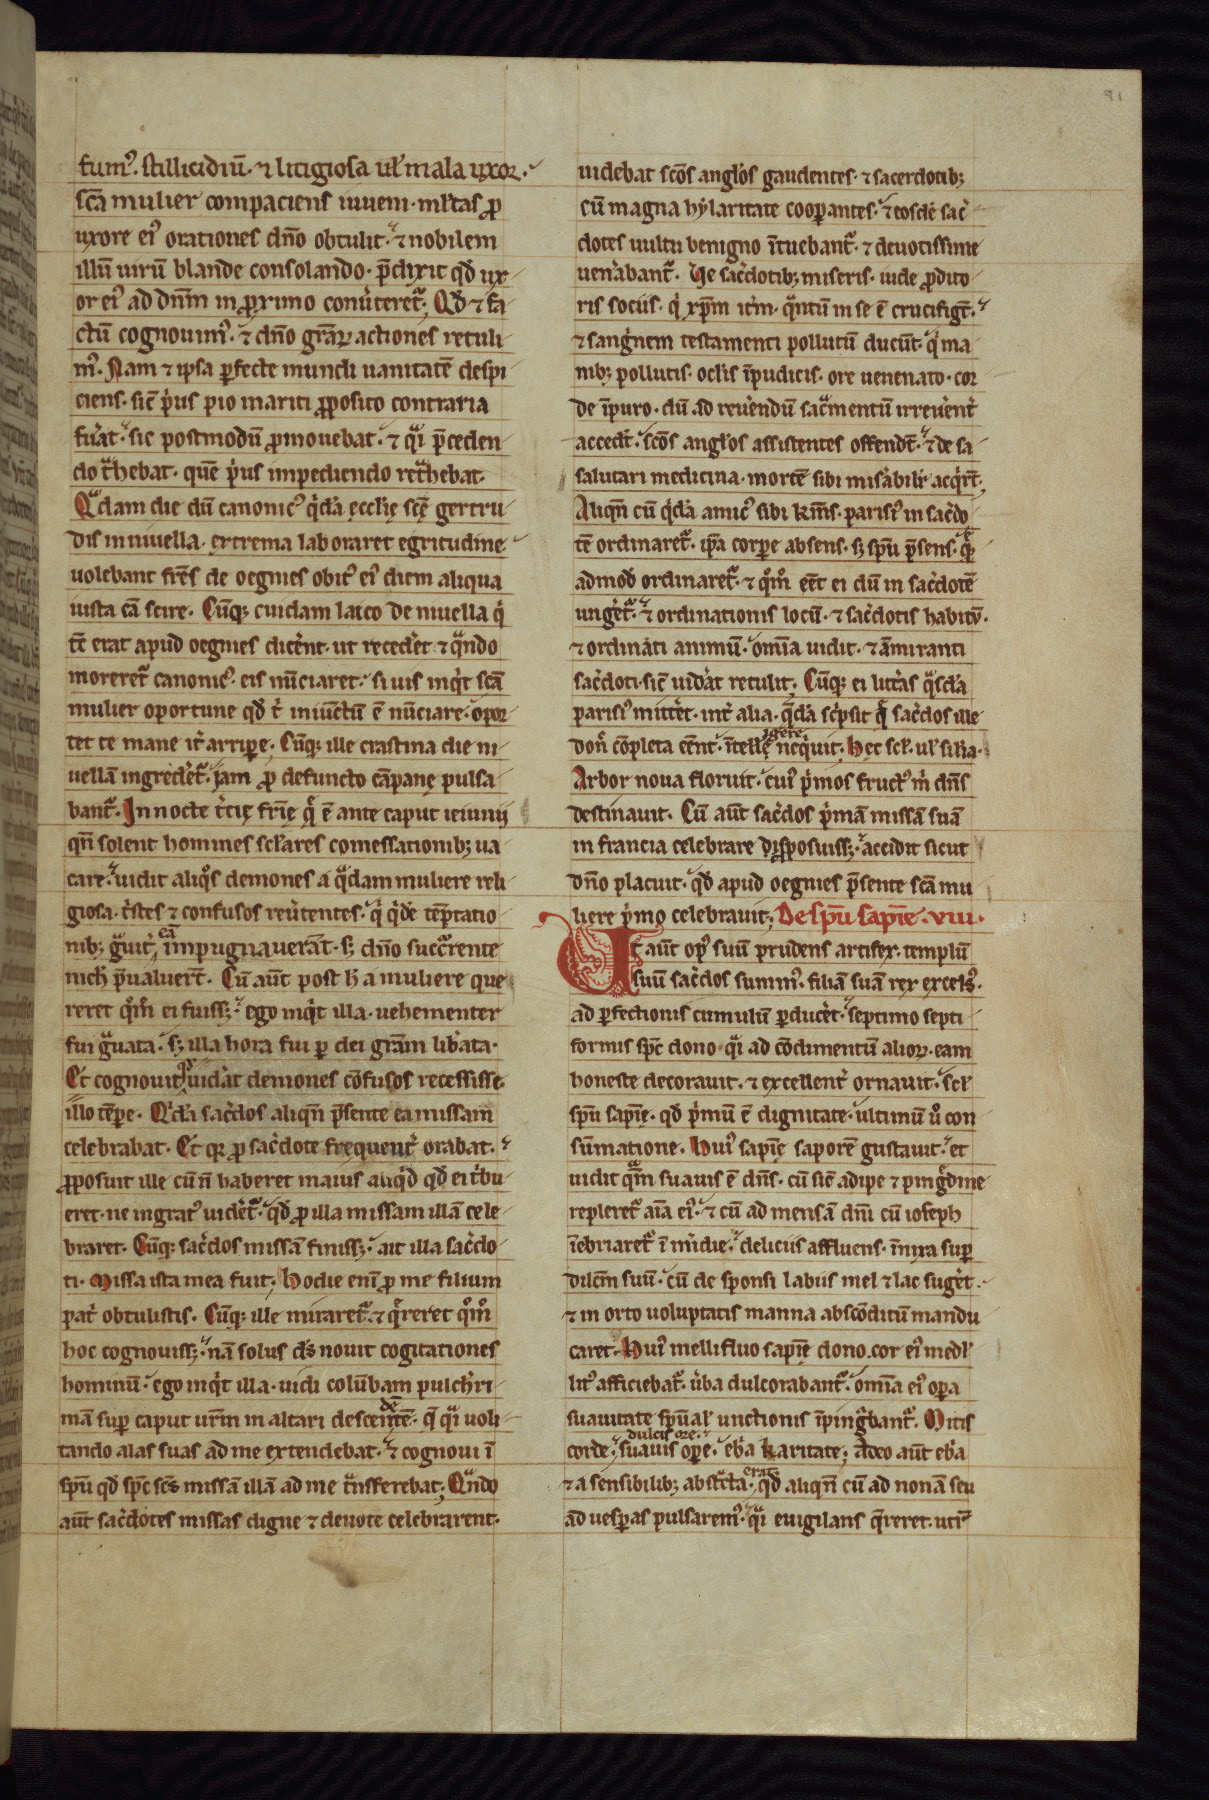 91
fum᷒. stillicidiū. ⁊ litigiosa ul̄ mala uxor.
sc̄a mulier compaciens iuueni. ml̄tas ꝓ
uxore ei᷒ orationes dn̄o obtulit. ⁊ nobilem
illū uirū blande consolando. p̄dixit qd̄ ux-
or ei᷒ ad dn̄m in ꝓximo conūteret᷑; Qd̄ ⁊ fa-
ctū cognouim᷒. ⁊ dn̄o gr̄aꝝ actiones retuli-
m᷒. Nam ⁊ ipsa ꝑfecte mundi uanitatē despi-
ciens. sic̄ p̓us pio mariti ꝓposito contraria
fu̓at. sic postmodū ꝓmouebat. ⁊ qᷓi p̄ceden-
do tᷓhebat. quē p̓us impediendo retᷓhebat.
Qᷓdam die dū canonic᷒ q̓da ęccl̄ię sc̄ę gertru-
dis in niuella. extrema laboraret egritudine
uolebant fr̄es de oegnies obit᷒ ei᷒ diem aliqua
iusta cā scire. Cūq; cuidam laico de niuella q̓
tc̄ erat apud oegnies dic̓ent. ut reced̓et ⁊ qᷓndo
moreret᷑ canonic᷒. eis nūciaret. si uis inq̓t sc̄a
mulier oportune qd̄ t̓ iniūctū ē nūciare. opor-
tet te mane it̓ arripe. Cūq; ille crastina die ni-
uellā ingred̓et᷑. iam ꝓ defuncto cāpanę pulsa-
bant᷑. In nocte t̓cię fr̄ię q̄ ē ante caput ieiunij
qn̄ solent homines scl̄ares comessationib; ua-
care. uidit aliqͦs demones a qᷓdam muliere reli-
giosa. t̓stes ⁊ confusos reu̓tentes. q̓ q̓dē tēptatio-
nib; gᷓuit̓ eā impugnauerāt. s; dn̄o succᷓrente
nich̄ p̄ualuer̄t. Cū aūt post h̄ a muliere que-
reret qͦm̄ ei fuiss;. ego inq̓t illa. uehementer
fui gᷓuata. s; illa hora fui ꝑ dei gr̄am lib̓ata.
Et cognouit qꝫ uid̓at demones cōfusos recessisse.
illo tēpe. Q̓da sac̓dos aliqn̄ p̄sente ea missam
celebrabat. Et qꝛ ꝓ sac̓dote frequent̓ orabat.
ꝓposuit ille cū n̄ haberet maius aliq̓d qd̄ ei t̓bu-
eret. ne ingrat᷒ uid̓et᷑. qd̄ ꝓ illa missam illā cele-
braret. Cūq; sac̓dos missā finiss;. ait illa sac̓do-
ti. Missa ista mea fuit. Hodie enī ꝓ me filium
pat̓ obtulistis. Cūq; ille miraret᷑. ⁊ q̄reret qͦm̄
hoc cognouiss;. nā solus d̄s nouit cogitationes
hominū. ego inq̓t illa. uidi colūbam pulch̓ri-
mā suꝑ caput ur̄m in altari descendētē. q̄ qᷓi uoli-
tando alas suas ad me extendebat. ⁊ cognoui ī
sp̄u qd̄ sp̄c sc̄s missā illā ad me tᷓnsferebat; Qᷓndo
aūt sac̓dotes missas digne ⁊ deuote celebrarent.
uidebat sc̄os angl̄os gaudentes. ⁊ sacerdotib;
cū magna hẏlaritate cooꝑantes. ⁊ eosdē sac̓-
dotes uultu benigno ītuebant᷑. ⁊ deuotissime
uen̓abant᷑. Ve sac̓dotib; miseris. iude ꝓdito-
ris sociis. q̓ xp̄m it̓m. qᷓntū in se ē crucifigt̄.
⁊ sang̓nem testamenti pollutū ducūt. q̓ ma-
nib; pollutis. oc̄lis īpudicis. ore uenenato. cor-
de īpuro. dū ad reu̓endū sac̓mentū irreu̓ent̓
accedt̄. sc̄os angl̄os assistentes offendt̄. ⁊ de sa-
salutari medicina. mortē sibi mis̓abilit̓ acq̓rt̄;
Aliqn̄ cū q̓dā amic᷒ sibi kr̄ms. parisi᷒ in sac̓do-
tē ordinaret᷑. ip̄a corꝑe absens. s; sp̄u p̄sens. quē-
admod̄ ordinaret᷑. ⁊ qͦm̄ eēt ei dū in sac̓dotē
ung̓et᷑. ⁊ ordinationis locū. ⁊ sac̓dotis habitū.
⁊ ordinati animū. om̄ia uidit. ⁊ āmiranti
sac̓doti. sic̄ uid̓at retulit. Cūq; ei litt̓as qᷓsda
parisi᷒ mitt̓et. int̓ alia. qᷓda sc̓psit q̄ sac̓dos ille
don̄ cōpleta eēnt. ītelligere neq̓uit. Hec scl̄. ul̄ silia.
Arbor noua floruit. cui᷒ p̓mos fruct᷒ m̓ dn̄s
destinauit. Cū aūt sac̓dos p̓mā missā suā
in francia celebrare disposuiss;. accidit sicut
dn̄o placuit. qd̄ apud oegnies p̄sente sc̄a mu-
liere p̓mo celebrauit; De sp̄u sapīe. viii.
Ut aūt op᷒ suū prudens artifex. templū
suū sac̓dos summ᷒. filiā suā rex excels᷒.
ad ꝑfectionis cumulū ꝑduc̓et. septimo septi-
formis sp̄c dono. qᷓi ad cōdimentū alioꝝ. eam
honeste decorauit. ⁊ excellent̓ ornauit. scl̄
sp̄u sapīę. qd̄ p̓mū ē dignitate. ultimū u̓o con-
sūmatione. Hui᷒ sapīę saporē gustauit. et
uidit qm̄ suauis ē dn̄s. cū sic̄ adipe ⁊ pinḡdine
repleret᷑ aīa ei᷒. ⁊ cū ad mensā dn̄i cū ioseph
īebriaret᷑ ī m̓die. deliciis affluens. īnixa suꝑ
dilc̄m suū. cū de sponsi labiis mel ⁊ lac sug̓et.
⁊ in orto uoluptatis manna abscōditū mandu-
caret. Hui᷒ mellifluo sapīę dono. cor ei᷒ medl̄-
lit᷒ afficiebat᷑. u̓ba dulcorabant᷑. om̄ia ei᷒ oꝑa
suauitate sp̄ual̄ unctionis īpingᷓbant᷑. Mitis
corde. dulcis ore. suauis oꝑe. eb̓a karitate; adeo aūt eb̓a
⁊ a sensibilib; abstᷓcta erat. qd̄ aliqn̄ cū ad nonā seu
ad uesꝑas pulsarem᷒. qᷓi euigilans q̄reret. ut᷒